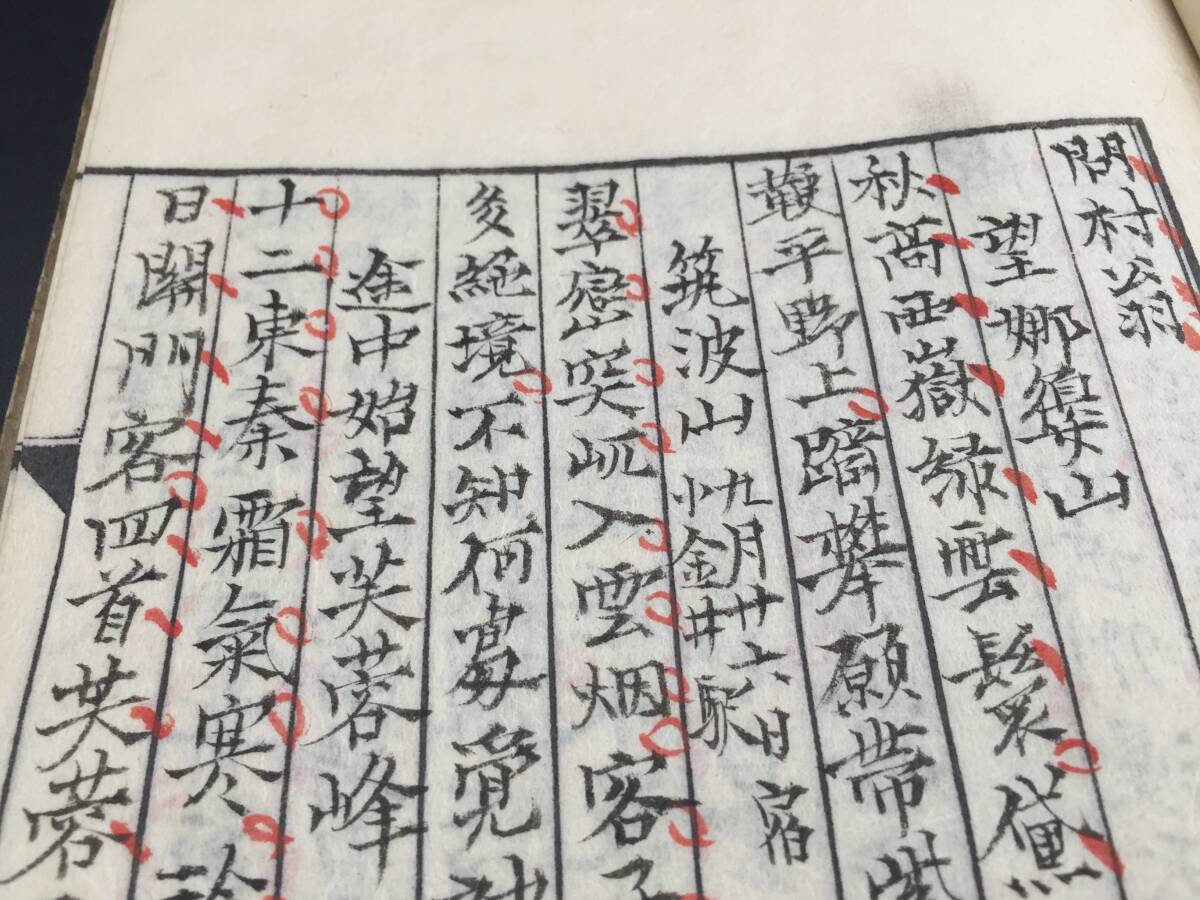 問村翁
望娜山
秋高西嶽綠雲鬟黛
艱平野上躋攀願帶紫
筑波山
九月廿六日宿
小金井駅
翠突屼入雲烟客子
後絕境不知何處覓神
途中始望芙蓉峰
十二東秦霜氣寒
日關門客回首芙蓉